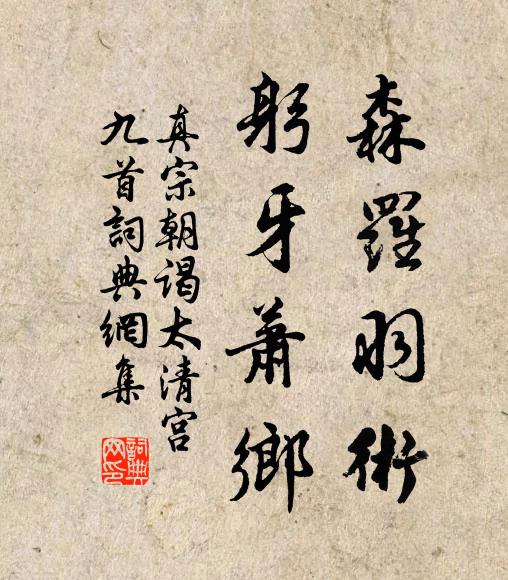 森羅羽術
躬牙蕭鄉
真宗朝謁太清宮
九首詞典網集
詞典
网印